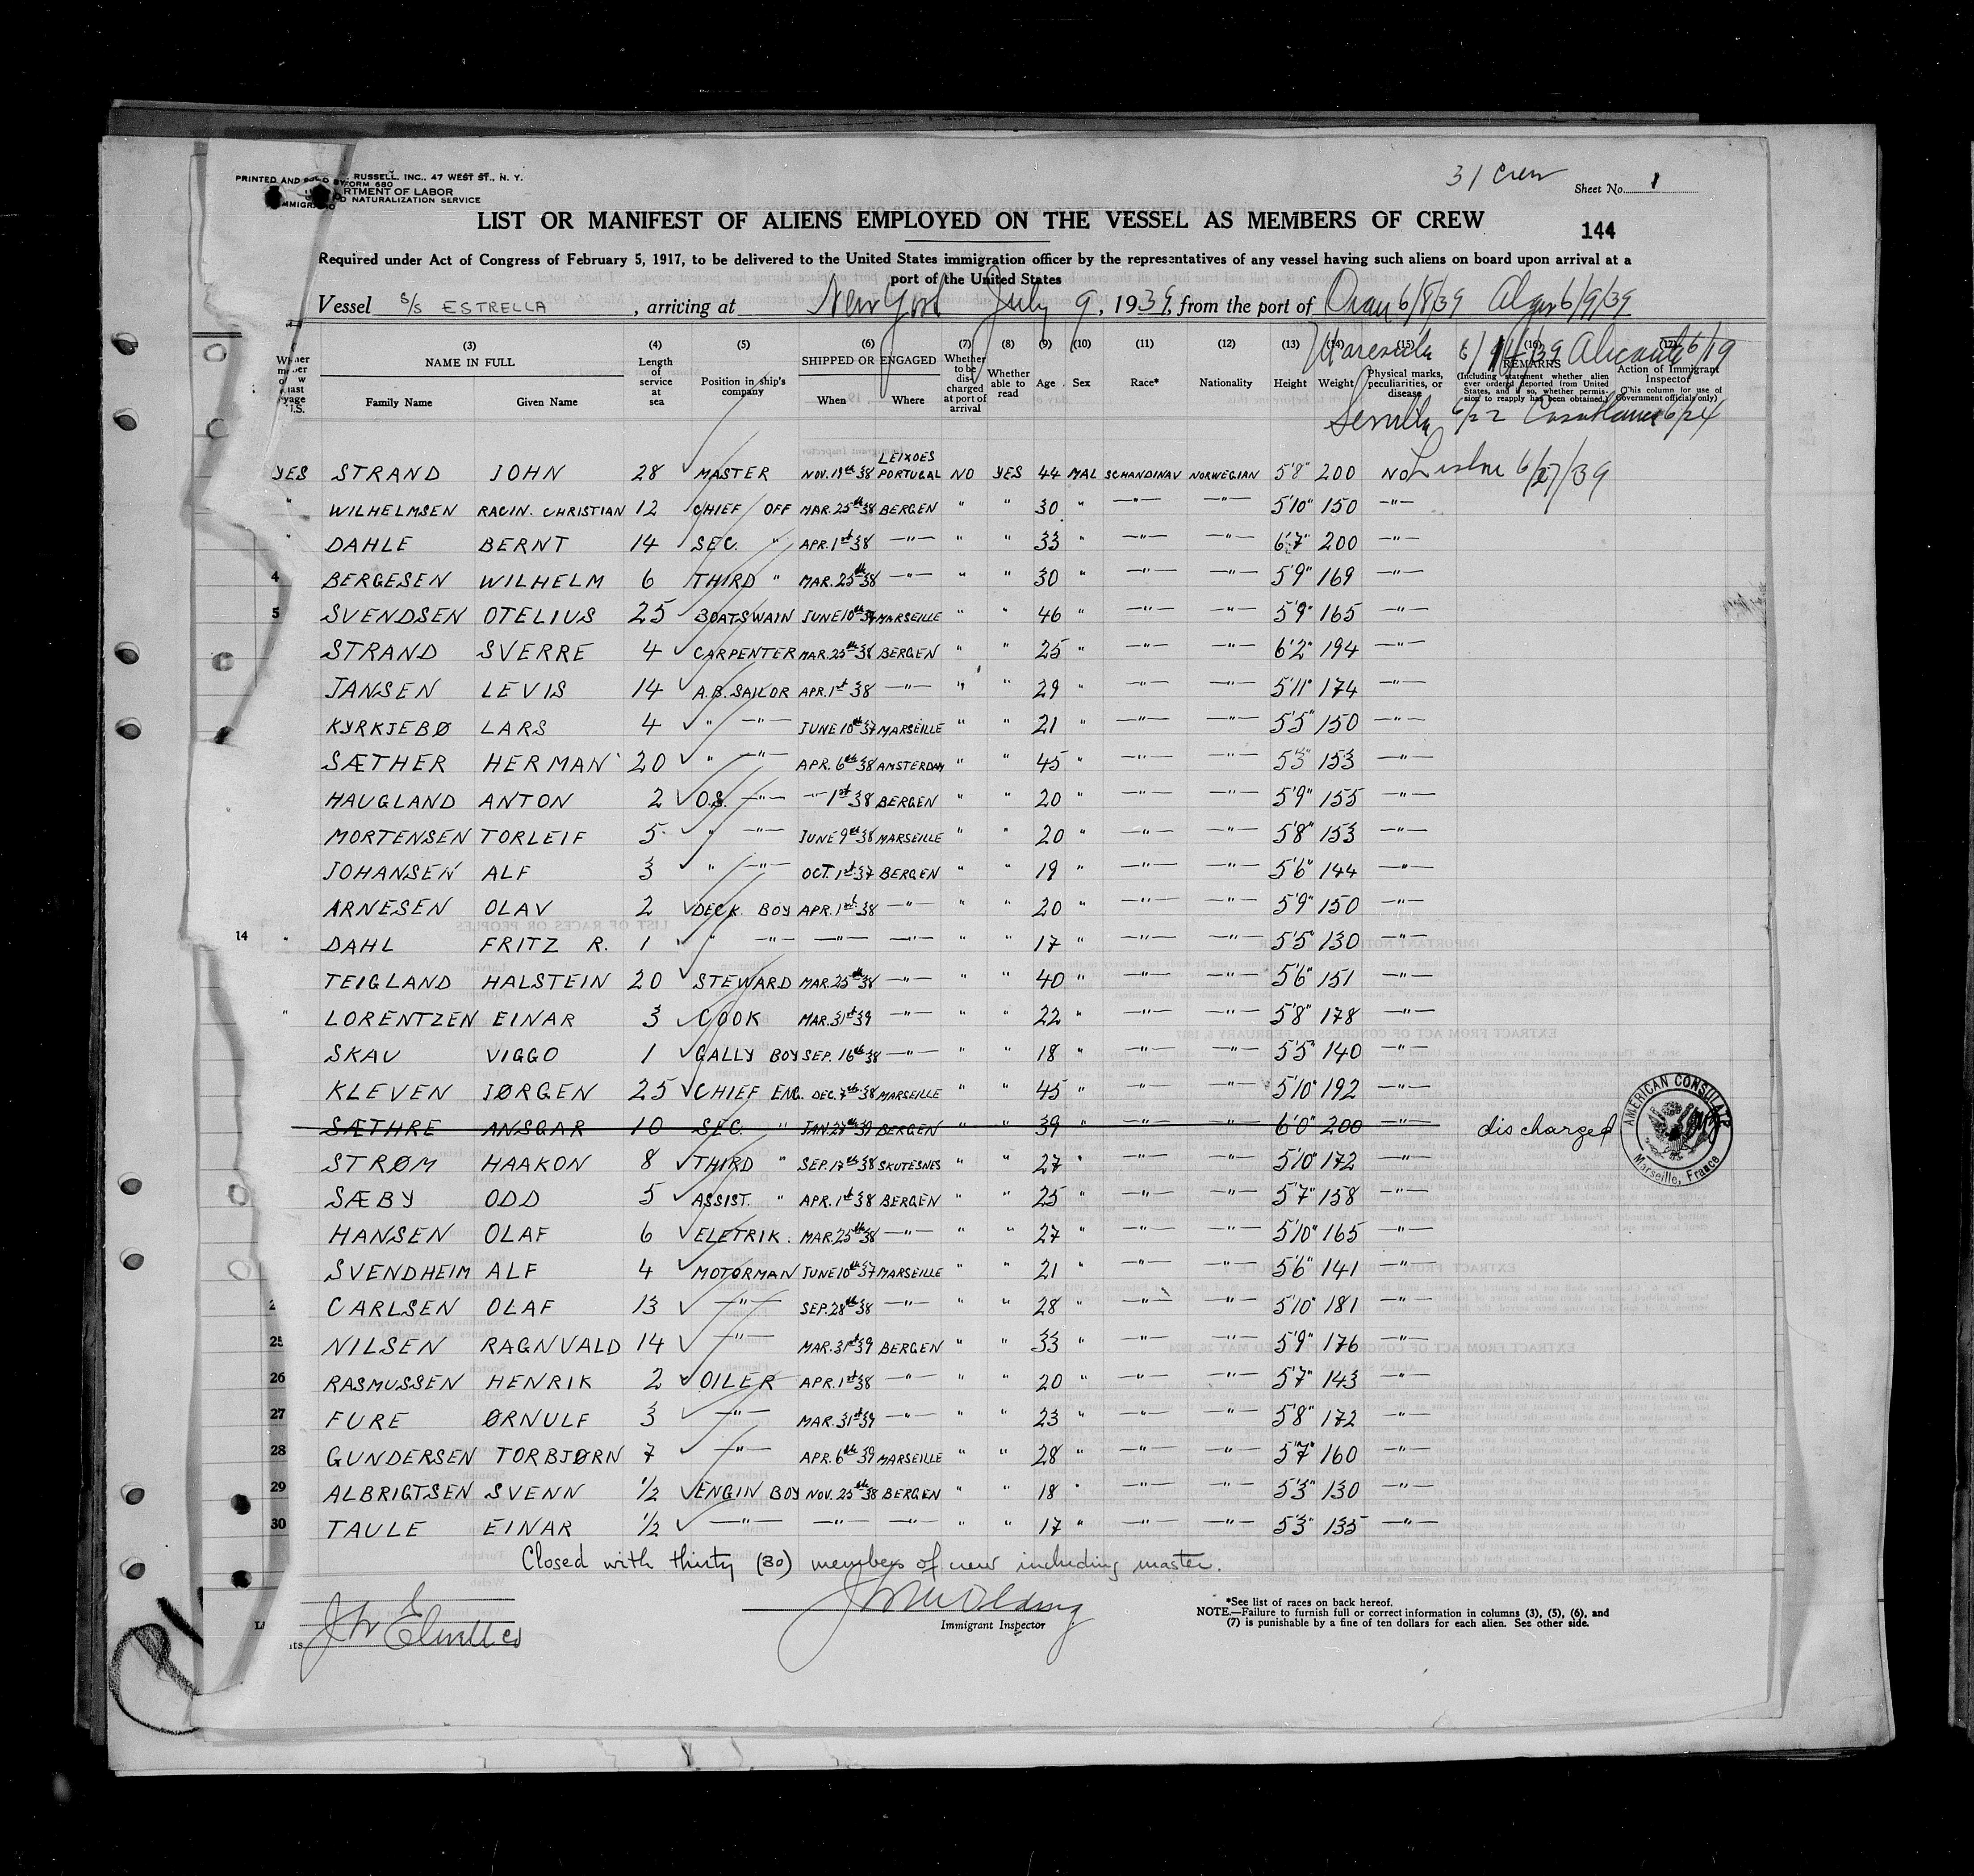 31 Crew
PRINTED AND SOLD BY RUSSELL. INC., 47 WEST ST., N. Y.
FORM 680
RTMENT OF LABOR
IMMIGRA D NATURALIZATION SERVICE
Sheet No. 1
LIST OR MANIFEST OF ALIENS EMPLOYED ON THE VESSEL AS MEMBERS OF CREW
144
Required under Act of Congress of February 5, 1917, to be delivered to the United States immigration officer by the representatives of any vessel having such aliens on board upon arrival at a
port of the United States
Vessel S/S ESTRELLA, arriving at New York July 9, 1939, from the port of Oran 6/8/39 Alger 6/9/39
Marseille 6/ /39 Alicante 6/19
Sevilla 6/22 Casablanca 6/24
Lisbon 6/27/39
(3) (4) (5) (6) (7) (8) (9) (10) (11) (12) (13) (14) (15) (16) (17)
NAME IN FULL Length of service at sea Position in ship's company SHIPPED OR ENGAGED Whether to be discharged at port of arrival Whether able to read Age Sex Race* Nationality Height Weight Physical marks, peculiarities, or disease REMARKS (Including statement whether alien ever ordered deported from United States, and if so, whether permission to reapply has been obtained.) Action of Immigrant Inspector (This column for use of Government officials only)
Family Name Given Name When Where
YES STRAND JOHN 28 MASTER NOV. 19th 38 LEIXOES PORTUGAL NO YES 44 MAL SCHANDINAV NORWEGIAN 5'8" 200 NO
" WILHELMSEN RAGIN. CHRISTIAN 12 CHIEF OFF MAR. 25th 38 BERGEN " " 30 " —"— —"— 5'10" 150 —"—
" DAHLE BERNT 14 SEC. " APR. 1st 38 —"— " " 33 " —"— —"— 6'7" 200 —"—
4 BERGESEN WILHELM 6 THIRD " MAR. 25th 38 —"— " " 30 " —"— —"— 5'9" 169 —"—
5 SVENDSEN OTELIUS 25 BOATSWAIN JUNE 10th 37 MARSEILLE " " 46 —"— —"— 5'9" 165 —"—
STRAND SVERRE 4 CARPENTER MAR. 25th 38 BERGEN " " 25 " —"— —"— 6'2" 194 —"—
JANSEN LEVIS 14 A.B. SAILOR APR. 1st 38 —"— " " 29 " —"— —"— 5'11" 174 —"—
KYRKJEBØ LARS 4 " —"— JUNE 10th 37 MARSEILLE " " 21 " —"— —"— 5'5" 150 —"—
SÆTHER HERMAN 20 " —"— APR. 6th 38 AMSTERDAM " " 45 " —"— —"— 5'3" 153 —"—
HAUGLAND ANTON 2 O.S. —"— —"— 1st 38 BERGEN " " 20 " —"— —"— 5'9" 155 —"—
MORTENSEN TORLEIF 5 " —"— JUNE 9th 38 MARSEILLE " " 20 " —"— —"— 5'8" 153 —"—
JOHANSEN ALF 3 " —"— OCT. 1st 37 BERGEN " " 19 " —"— —"— 5'6" 144 —"—
ARNESEN OLAV 2 DECK BOY APR. 1st 38 —"— " " 20 " —"— —"— 5'9" 150 —"—
14 " DAHL FRITZ R. 1 " —"— —"— —"— " " 17 " —"— —"— 5'5" 130 —"—
TEIGLAND HALSTEIN 20 STEWARD MAR. 25th 38 —"— " " 40 " —"— —"— 5'6" 151 —"—
" LORENTZEN EINAR 3 COOK MAR. 31st 39 —"— " " 22 " —"— —"— 5'8" 178 —"—
SKAU VIGGO 1 GALLY BOY SEP. 16th 38 —"— " " 18 " —"— —"— 5'5" 140 —"—
KLEVEN JØRGEN 25 CHIEF ENG. DEC. 7th 38 MARSEILLE " " 45 " —"— —"— 5'10" 192 —"—
SÆTHRE ANSGAR 10 SEC. " JAN. 27th 39 BERGEN " " 39 " —"— —"— 6'0" 200 —"— discharged
AMERICAN CONSULATE Marseille, France
STRØM HAAKON 8 THIRD " SEP. 17th 38 SKUTESNES " " 27 " —"— —"— 5'10" 172 —"—
SÆBY ODD 5 ASSIST. " APR. 1st 38 BERGEN " " 25 " —"— —"— 5'7" 158 —"—
HANSEN OLAF 6 ELETRIK. MAR. 25th 38 —"— " " 27 " —"— —"— 5'10" 165 —"—
SVENDHEIM ALF 4 MOTORMAN JUNE 10th 37 MARSEILLE " " 21 " —"— —"— 5'6" 141 —"—
2 CARLSEN OLAF 13 —"— SEP. 28th 38 —"— " " 28 " —"— —"— 5'10" 181 —"—
25 NILSEN RAGNVALD 14 —"— MAR. 31st 39 BERGEN " " 33 " —"— —"— 5'9" 176 —"—
26 RASMUSSEN HENRIK 2 OILER APR. 1st 38 —"— " " 20 " —"— —"— 5'7" 143 —"—
27 FURE ØRNULF 3 —"— MAR. 31st 39 —"— " " 23 " —"— —"— 5'8" 172 —"—
28 GUNDERSEN TORBJØRN 7 —"— APR. 6th 39 MARSEILLE " " 28 " —"— —"— 5'7" 160 —"—
29 ALBRIGTSEN SVENN 1/2 ENGIN BOY NOV. 25th 38 BERGEN " " 18 " —"— —"— 5'3" 130 —"—
30 TAULE EINAR 1/2 —"— —"— —"— " " 17 " —"— —"— 5'3" 135 —"—
Closed with thirty (30) members of crew including master.
Immigrant Inspector
*See list of races on back hereof.
NOTE.—Failure to furnish full or correct information in columns (3), (5), (6), and
(7) is punishable by a fine of ten dollars for each alien. See other side.